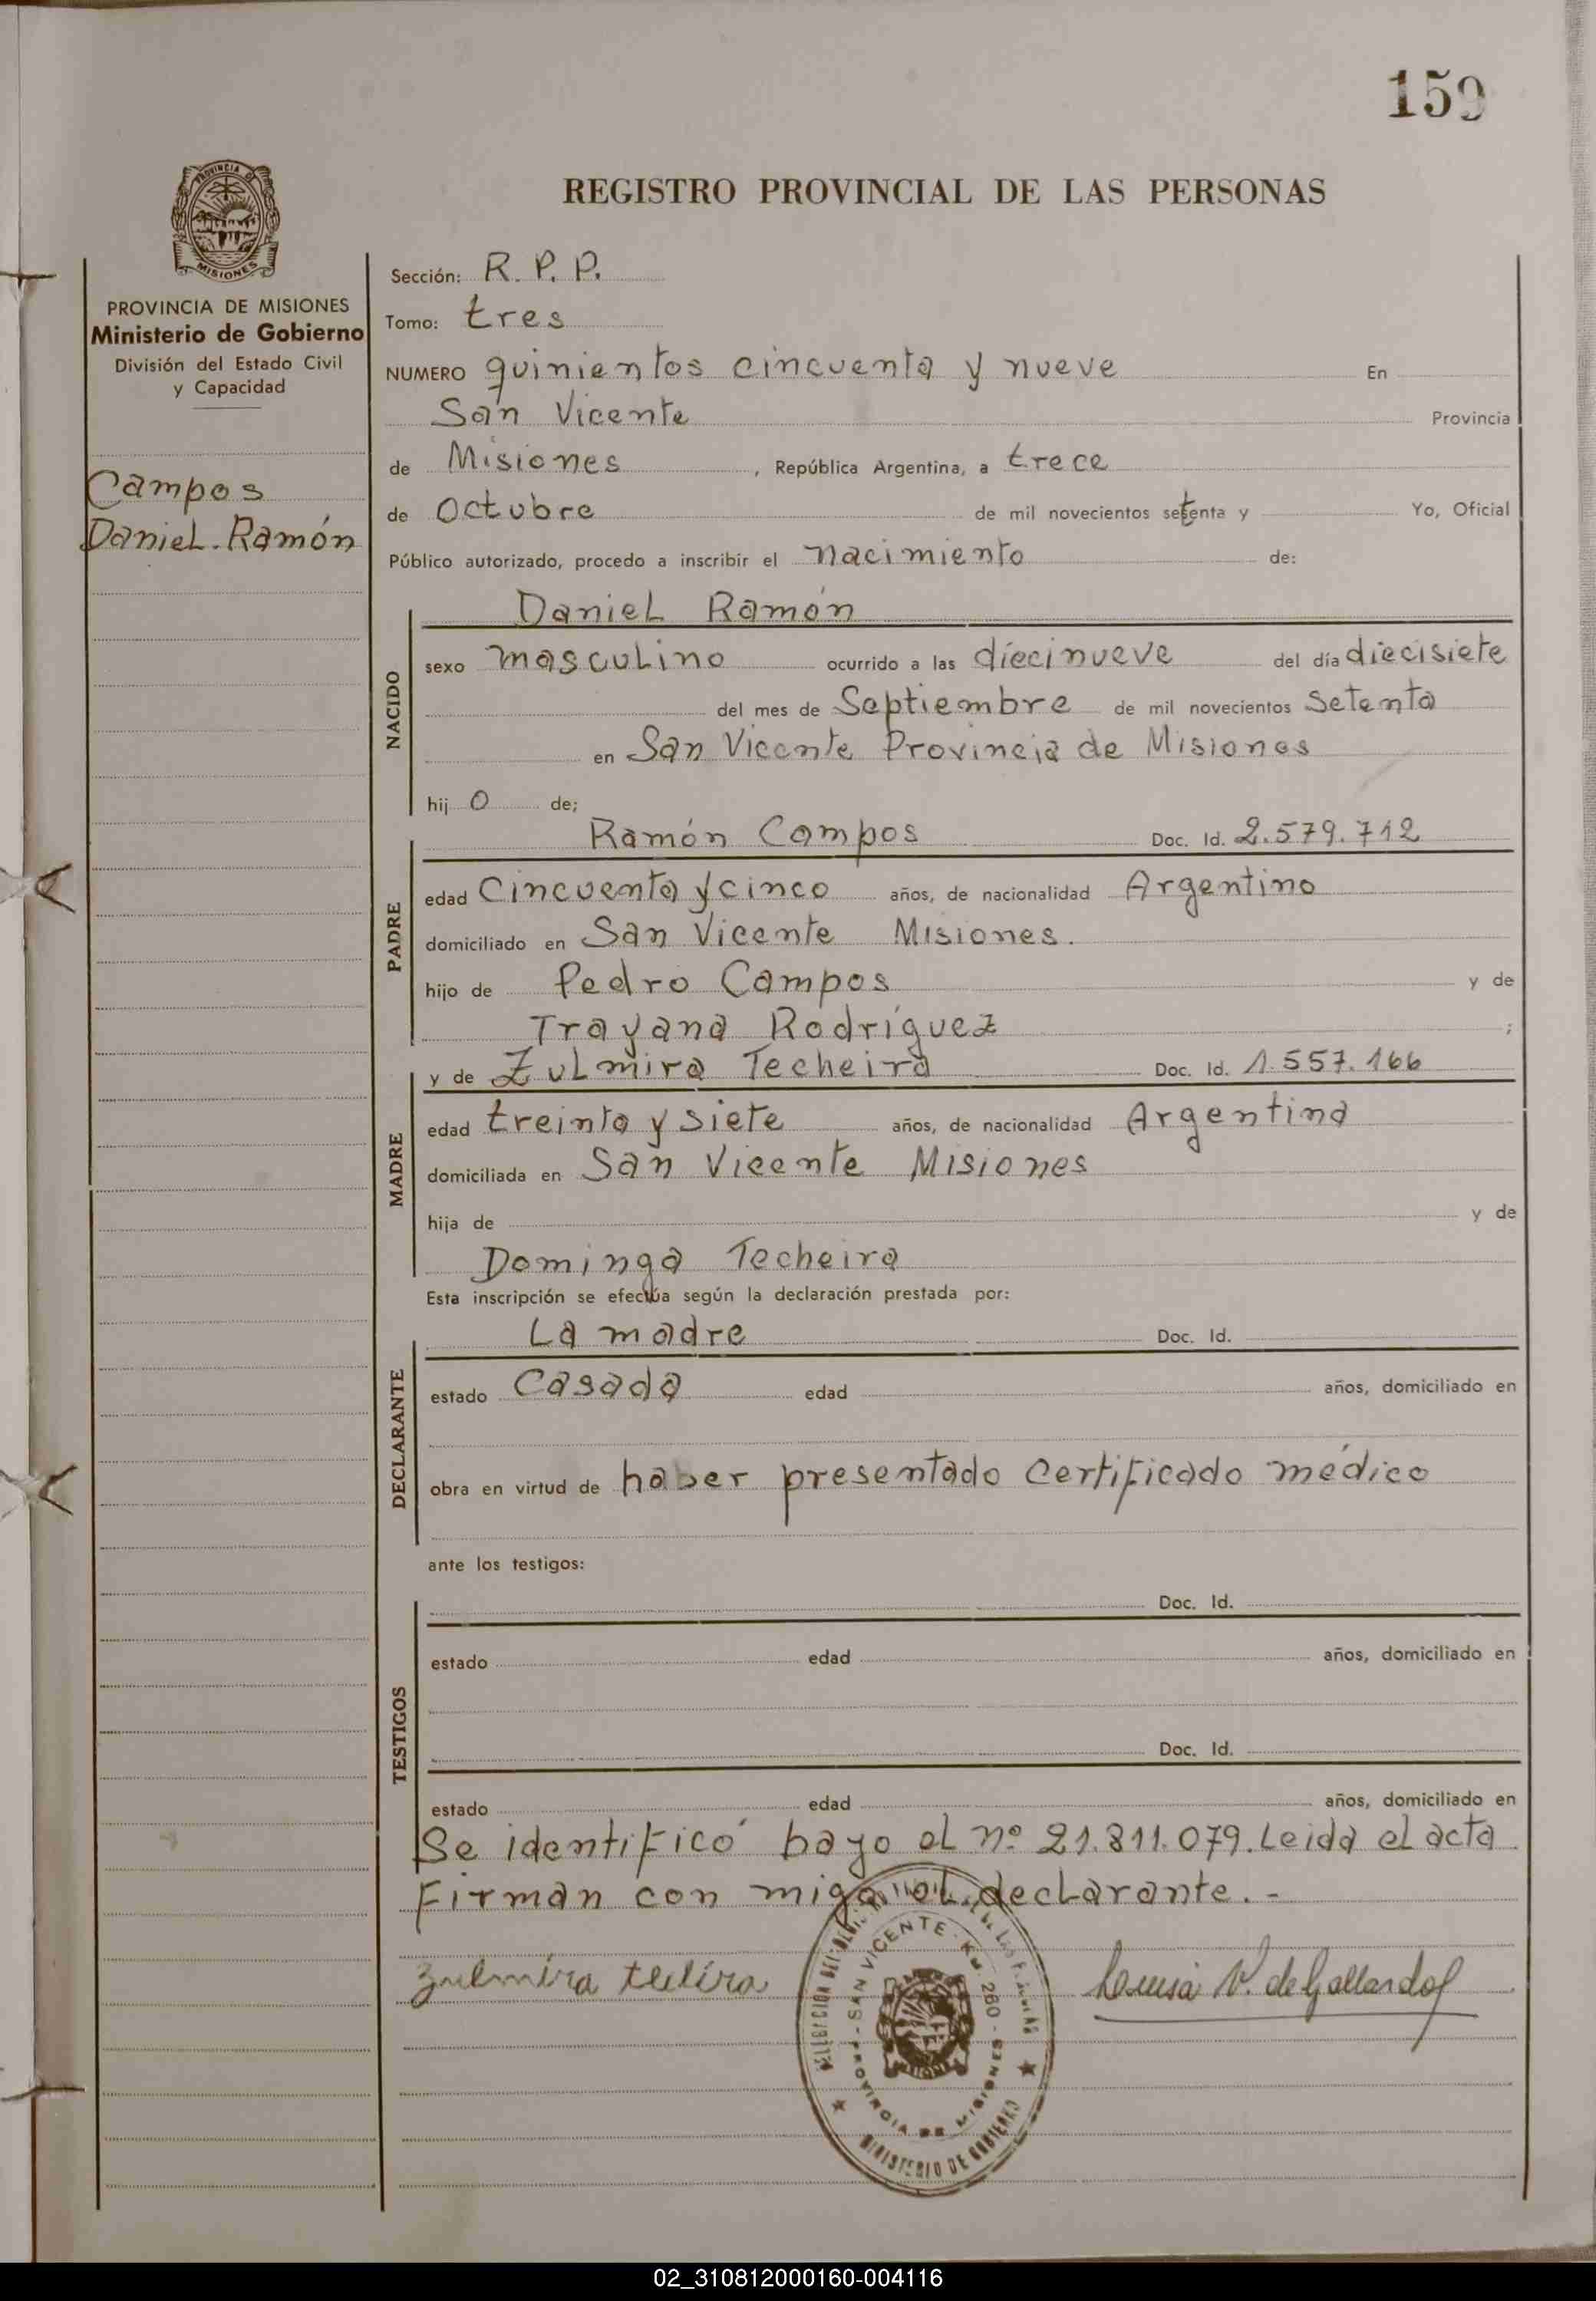 159
PROVINCIA DE
MISIONES
REGISTRO PROVINCIAL DE LAS PERSONAS
PROVINCIA DE MISIONES
Ministerio de Gobierno
División del Estado Civil
y Capacidad
Campos
Daniel Ramón
Sección: R. P. P.
Tomo: tres
NUMERO quinientos cincuenta y nueve En
San Vicente Provincia
de Misiones , República Argentina, a trece
de Octubre de mil novecientos setenta y Yo, Oficial
Público autorizado, procedo a inscribir el nacimiento de:
Daniel Ramón
NACIDO
sexo masculino ocurrido a las diecinueve del día diecisiete
del mes de Septiembre de mil novecientos setenta
en San Vicente Provincia de Misiones
hij o de;
Ramón Campos Doc. Id. 2.579.712
PADRE
edad Cincuenta y cinco años, de nacionalidad Argentino
domiciliado en San Vicente Misiones.
hijo de Pedro Campos y de
Trayana Rodríguez ;
y de Zulmira Techeira Doc. Id. 1.557.166
MADRE
edad treinta y siete años, de nacionalidad Argentina
domiciliada en San Vicente Misiones
hija de y de
Dominga Techeira
Esta inscripción se efectúa según la declaración prestada por:
La madre Doc. Id.
DECLARANTE
estado Casada edad años, domiciliado en
obra en virtud de haber presentado certificado médico
ante los testigos:
Doc. Id.
TESTIGOS
estado edad años, domiciliado en
Doc. Id.
estado edad años, domiciliado en
Se identificó bayo el nº 21.811.079. Leida el acta
Firman con migo el declarante. -
Zulmira
Luisa V. de Gallardo
SAN VICENTE - Km. 260 -
PROVINCIA DE MISIONES
MINISTERIO DE GOBIERNO
02_310812000160-004116